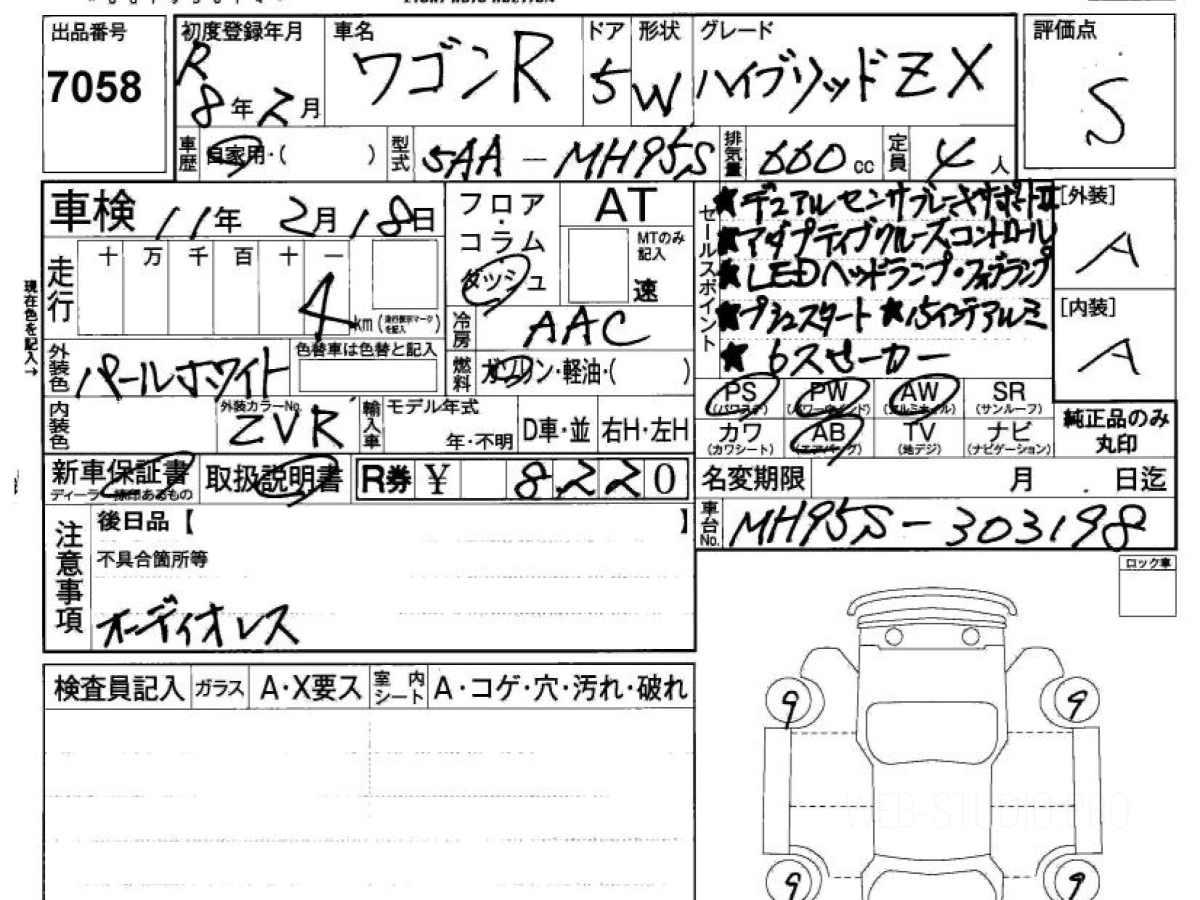 出品番号
7058
初度登録年月
R
8年2月
車名
ワゴンR
ドア
5
形状
W
グレード
ハイブリッドZX
評価点
S
車歴
自家用・( )
型式
5AA-MH95S
排気量
660cc
定員
4人
車検 11年 2月18日
フロア・コラム
ダッシュ
AT
MTのみ記入
速
セールスポイント
★デュアルセンサブレーキサポートII
★アダプティブクルーズコントロール
★LEDヘッドランプ・フォグランプ
★プシュスタート ★15インチアルミ
★6スピーカー
[外装]
A
[内装]
A
現在色を記入→
走行
十 万 千 百 十 一
4
km(走行表示マークを記入)
冷房
AAC
外装色
パールホワイト
色替車は色替と記入
燃料
ガソリン・軽油・( )
内装色
外装カラーNo.
ZVR
輸入車
モデル年式
年・不明
D車・並
右H・左H
PS (パワステ)
PW (パワーウインド)
AW (アルミホイル)
SR (サンルーフ)
カワ (カワシート)
AB (エアバック)
TV (地デジ)
ナビ (ナビゲーション)
純正品のみ丸印
新車保証書
ディーラー捺印あるもの
取扱説明書
R券 ¥ 8,220
名変期限 月 日迄
車台No.
MH95S-303198
注意事項
後日品【 】
不具合箇所等
オーディオレス
ロック車
検査員記入
ガラス
A・X要ス
室内シート
A・コゲ・穴・汚れ・破れ
9
9
9
9
WEB-STUDIO.PRO